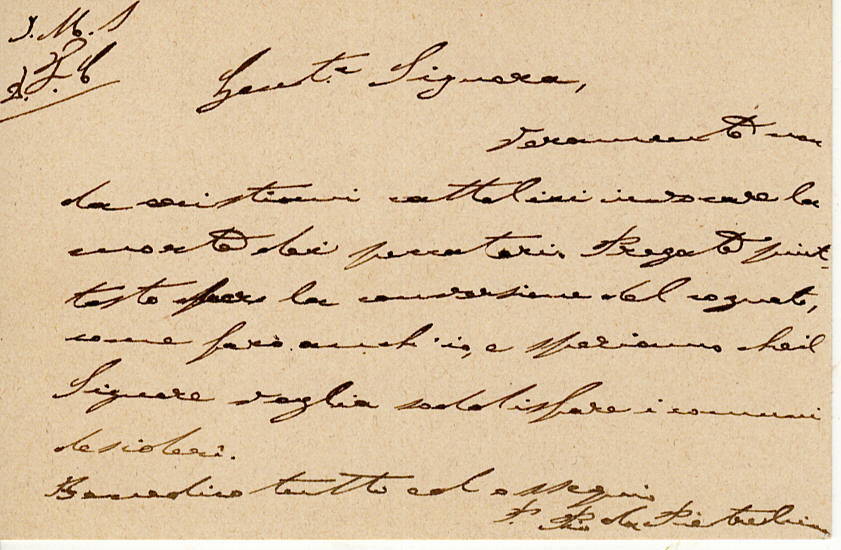 J. M. J.
D. F. C.
Gent.ᵃ Signora,
veramente non
da cristiani cattolici invocare la
morte dei peccatori. Pregate piut-
tosto per la conversione del cognato,
come farò anch'io, e speriamo che il
Signore voglia soddisfare i comuni
desideri.
Benedico tutti ed ossequio
P. Pio da Pietrelcina